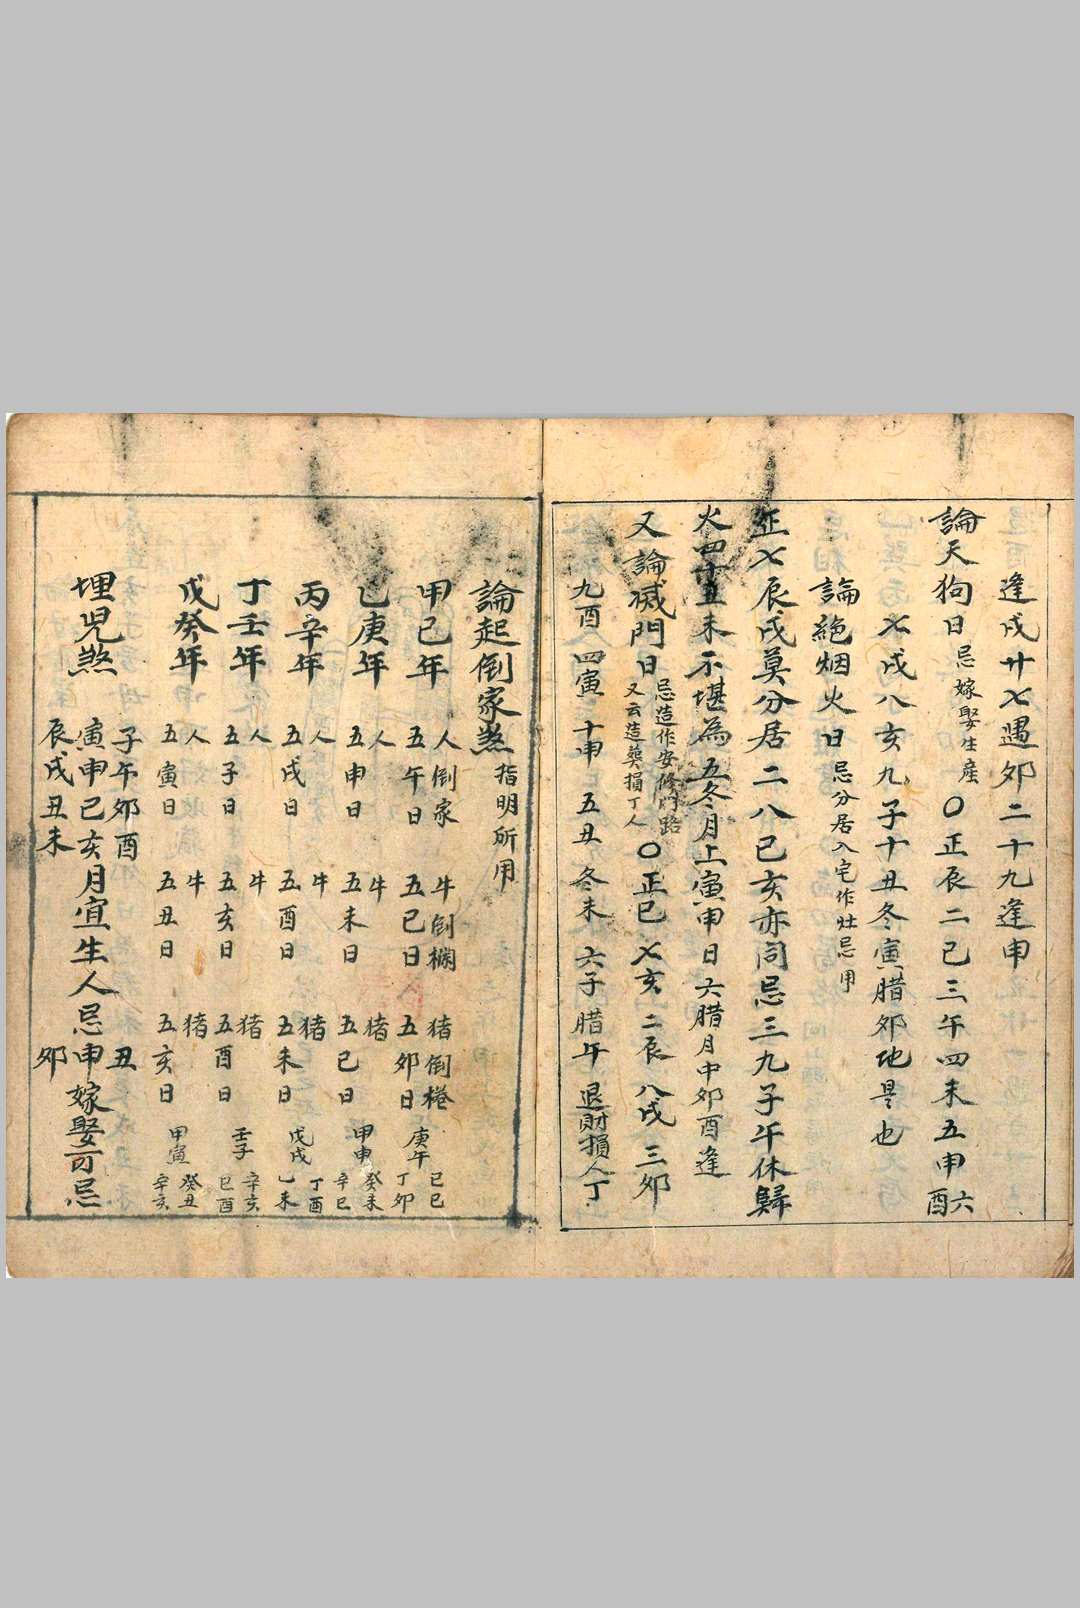 逢戌廿七遇卯二十九逢申
論天狗日忌嫁娶生産〇正辰二巳三午四未五申六酉
七戌八亥九子十丑冬寅腊卯地是也
論絶烟火日忌分居入宅作灶忌用
正七辰戌莫分居二八巳亥亦同忌三九子午休歸
火四十丑未不堪為五冬月上寅申日六腊月中卯酉逢
又論滅門日忌造作安修門路又云造葬損丁人〇正巳七亥二辰八戌三卯
九酉四寅十申五丑冬未六子腊午退財損人丁
論起倒家煞指明所用
甲己年 人倒家 五午日 牛倒欄 五巳日 猪倒棬 五卯日 庚午 己巳 丁卯
乙庚年 人 五申日 牛 五未日 猪 五巳日 甲申 癸未 辛巳
丙辛年 人 五戌日 牛 五酉日 猪 五未日 戊戌 丁酉 乙未
丁壬年 人 五子日 牛 五亥日 猪 五酉日 壬子 辛亥 己酉
戊癸年 人 五寅日 牛 五丑日 猪 五亥日 甲寅 癸丑 辛亥
埋児煞 子午卯酉 寅申巳亥 辰戌丑未 月宜生人忌 丑 申 卯 嫁娶可忌